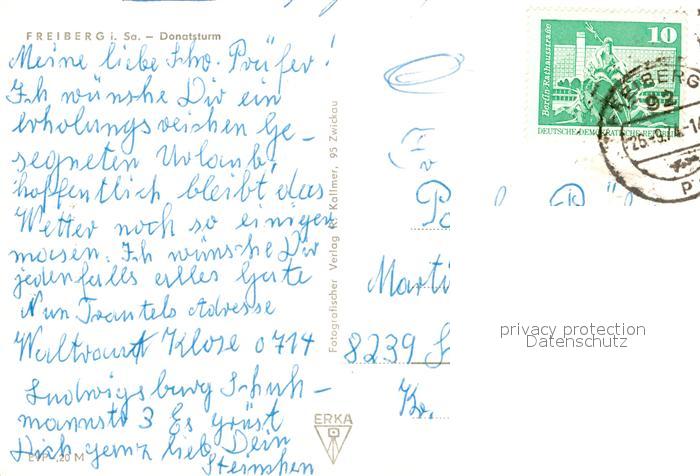 FREIBERG i. Sa. – Donatsturm
Meine liebe Schw. Prüfer!
Ich wünsche Dir ein
erholungsreichen Ge-
segneten Urlaub,
hoffentlich bleibt das
Wetter noch so einiger
masen. Ich wünsche Dir
jedenfalls alles Gute
Nun Trautels Adresse
Waltraut Klose 0714
Ludwigsburg Schuh-
mannstr 3 Es grüst
Dich ganz lieb Dein
Steinchen
EVP -,20 M
Fotografischer Verlag R. Kallmer, 95 Zwickau
ERKA
10
Berlin-Rathausstraße
DEUTSCHE DEMOKRATISCHE REPUBLIK
FREIBERG
92
Marti
8239
Kr.
privacy protection
Datenschutz